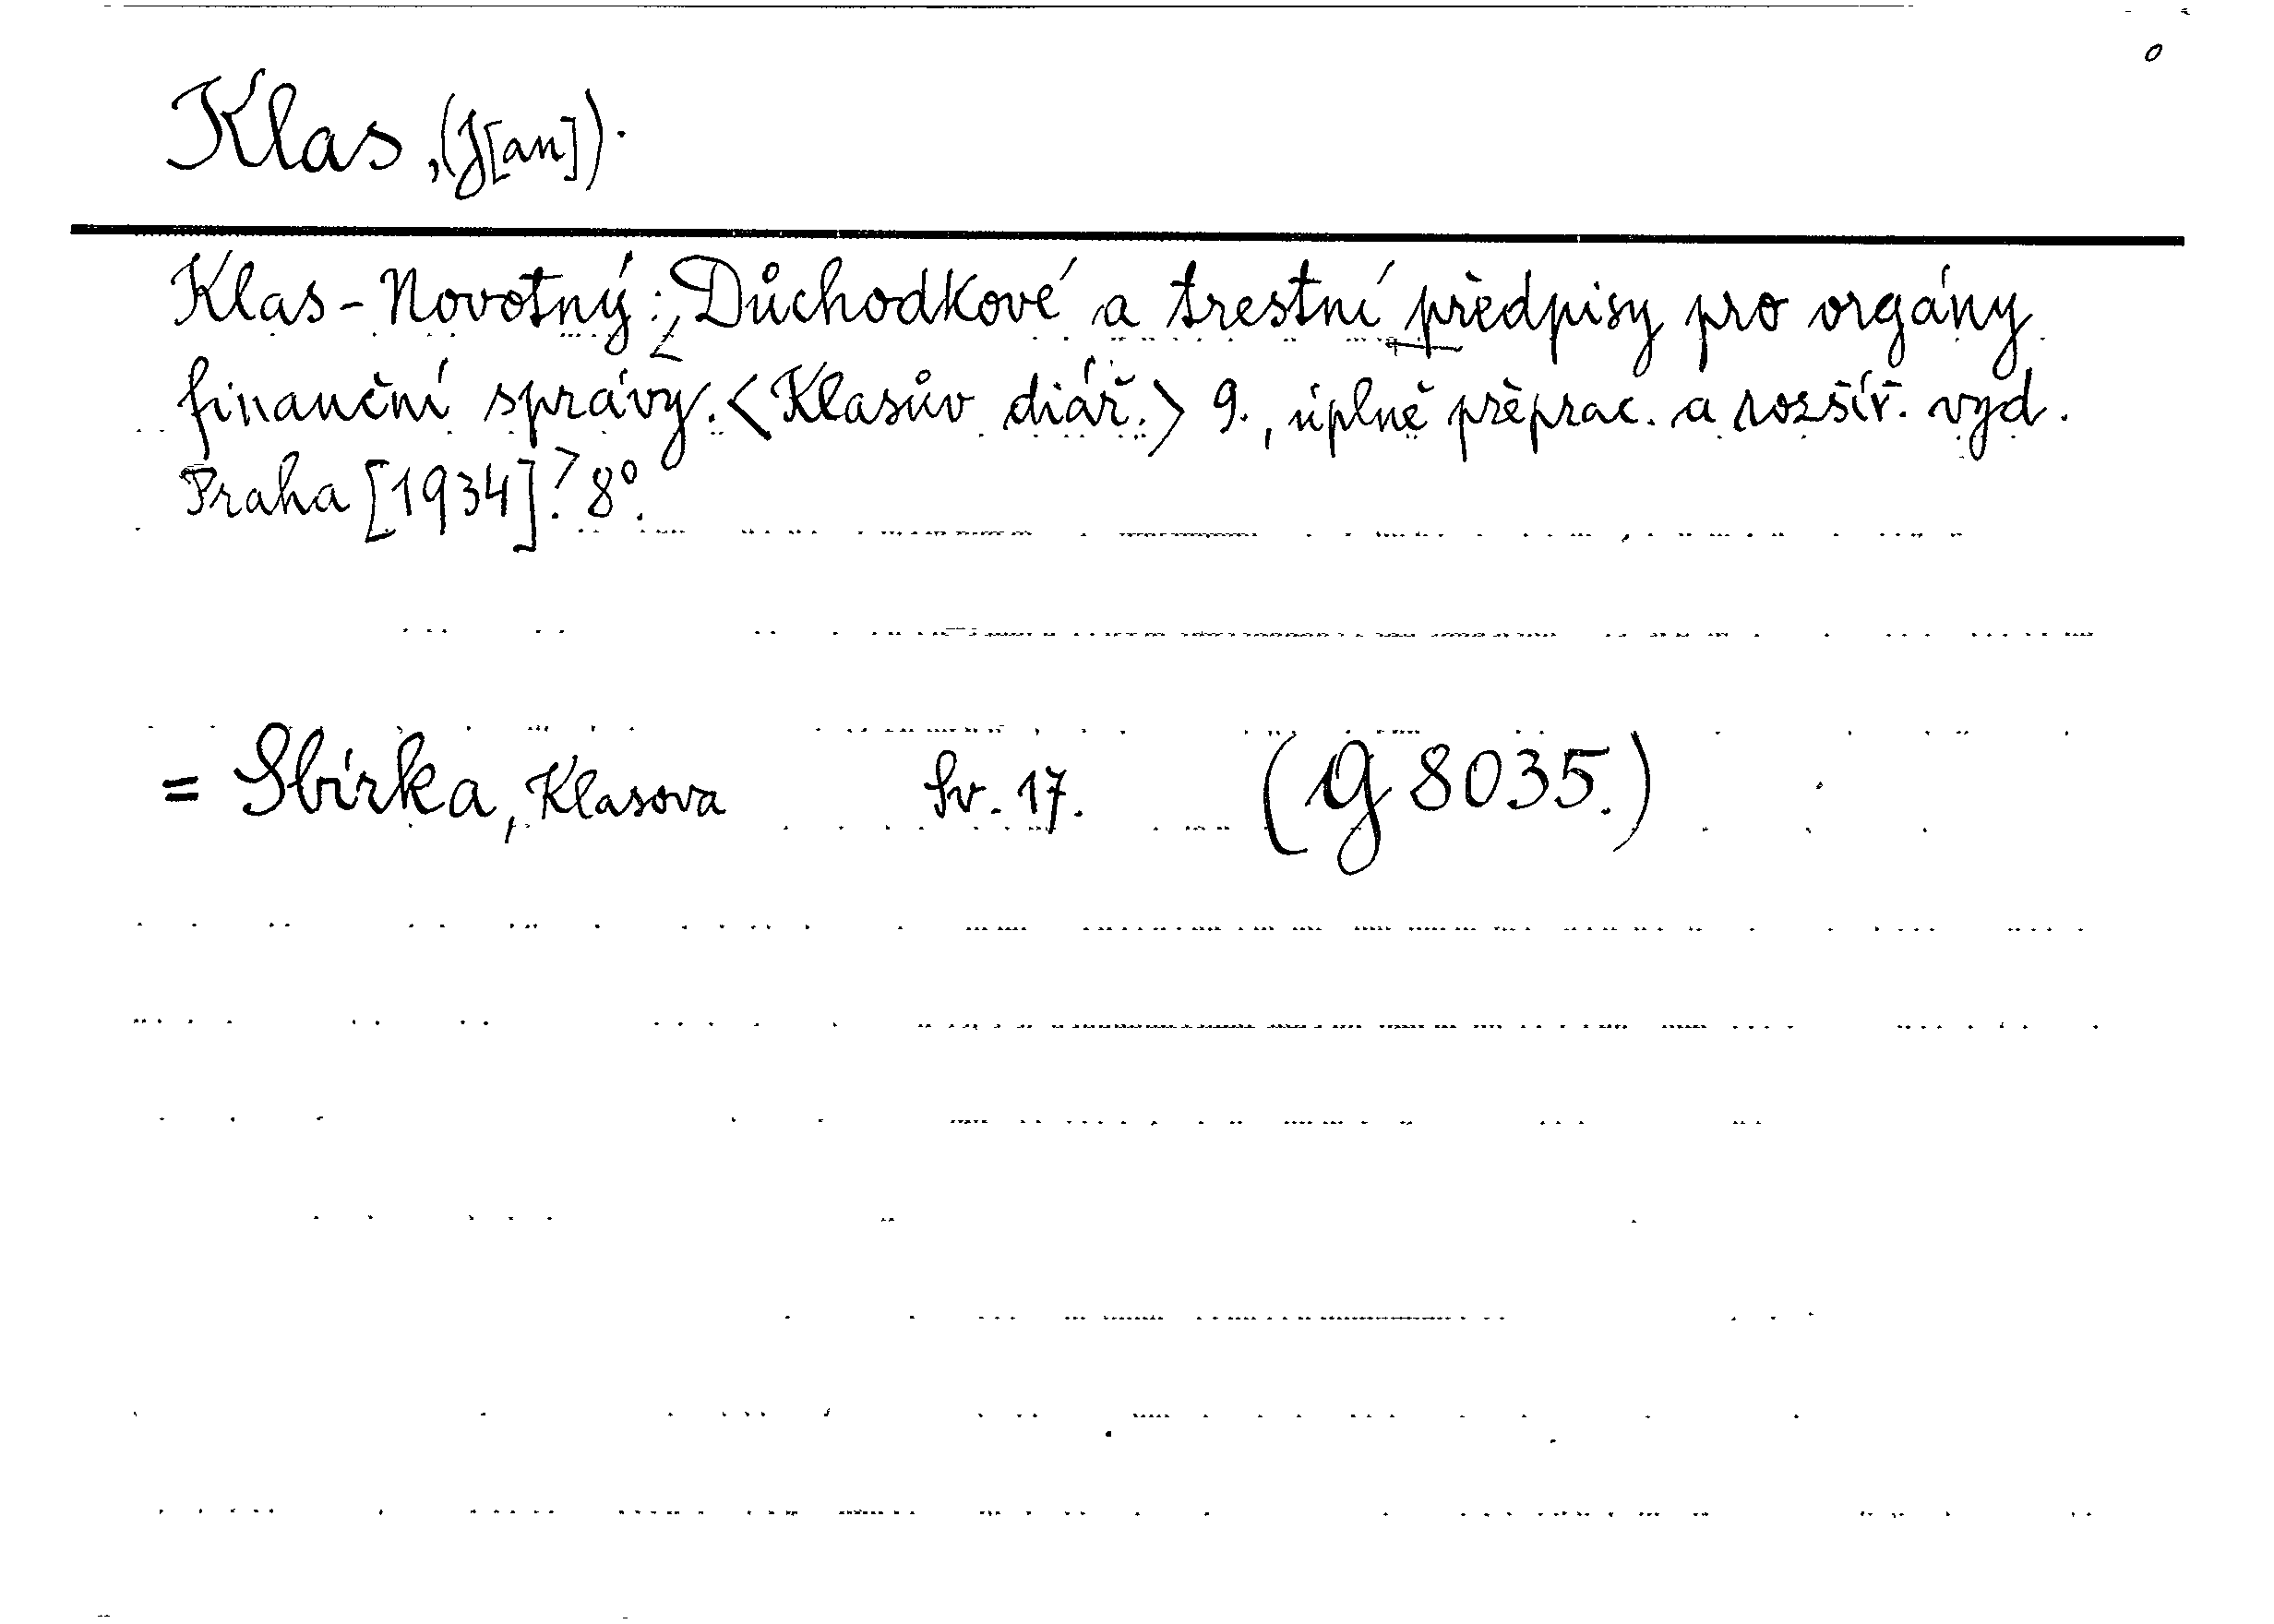 Klas, (J[an]).
Klas-Novotný: Důchodkové a trestní předpisy pro orgány
finanční správy. <Klasův diář.> 9., úplně přeprac. a rozšíř. vyd.
Praha [1934]. 8°.
= Sbírka, Klasova Sv. 17. (G 8035.)